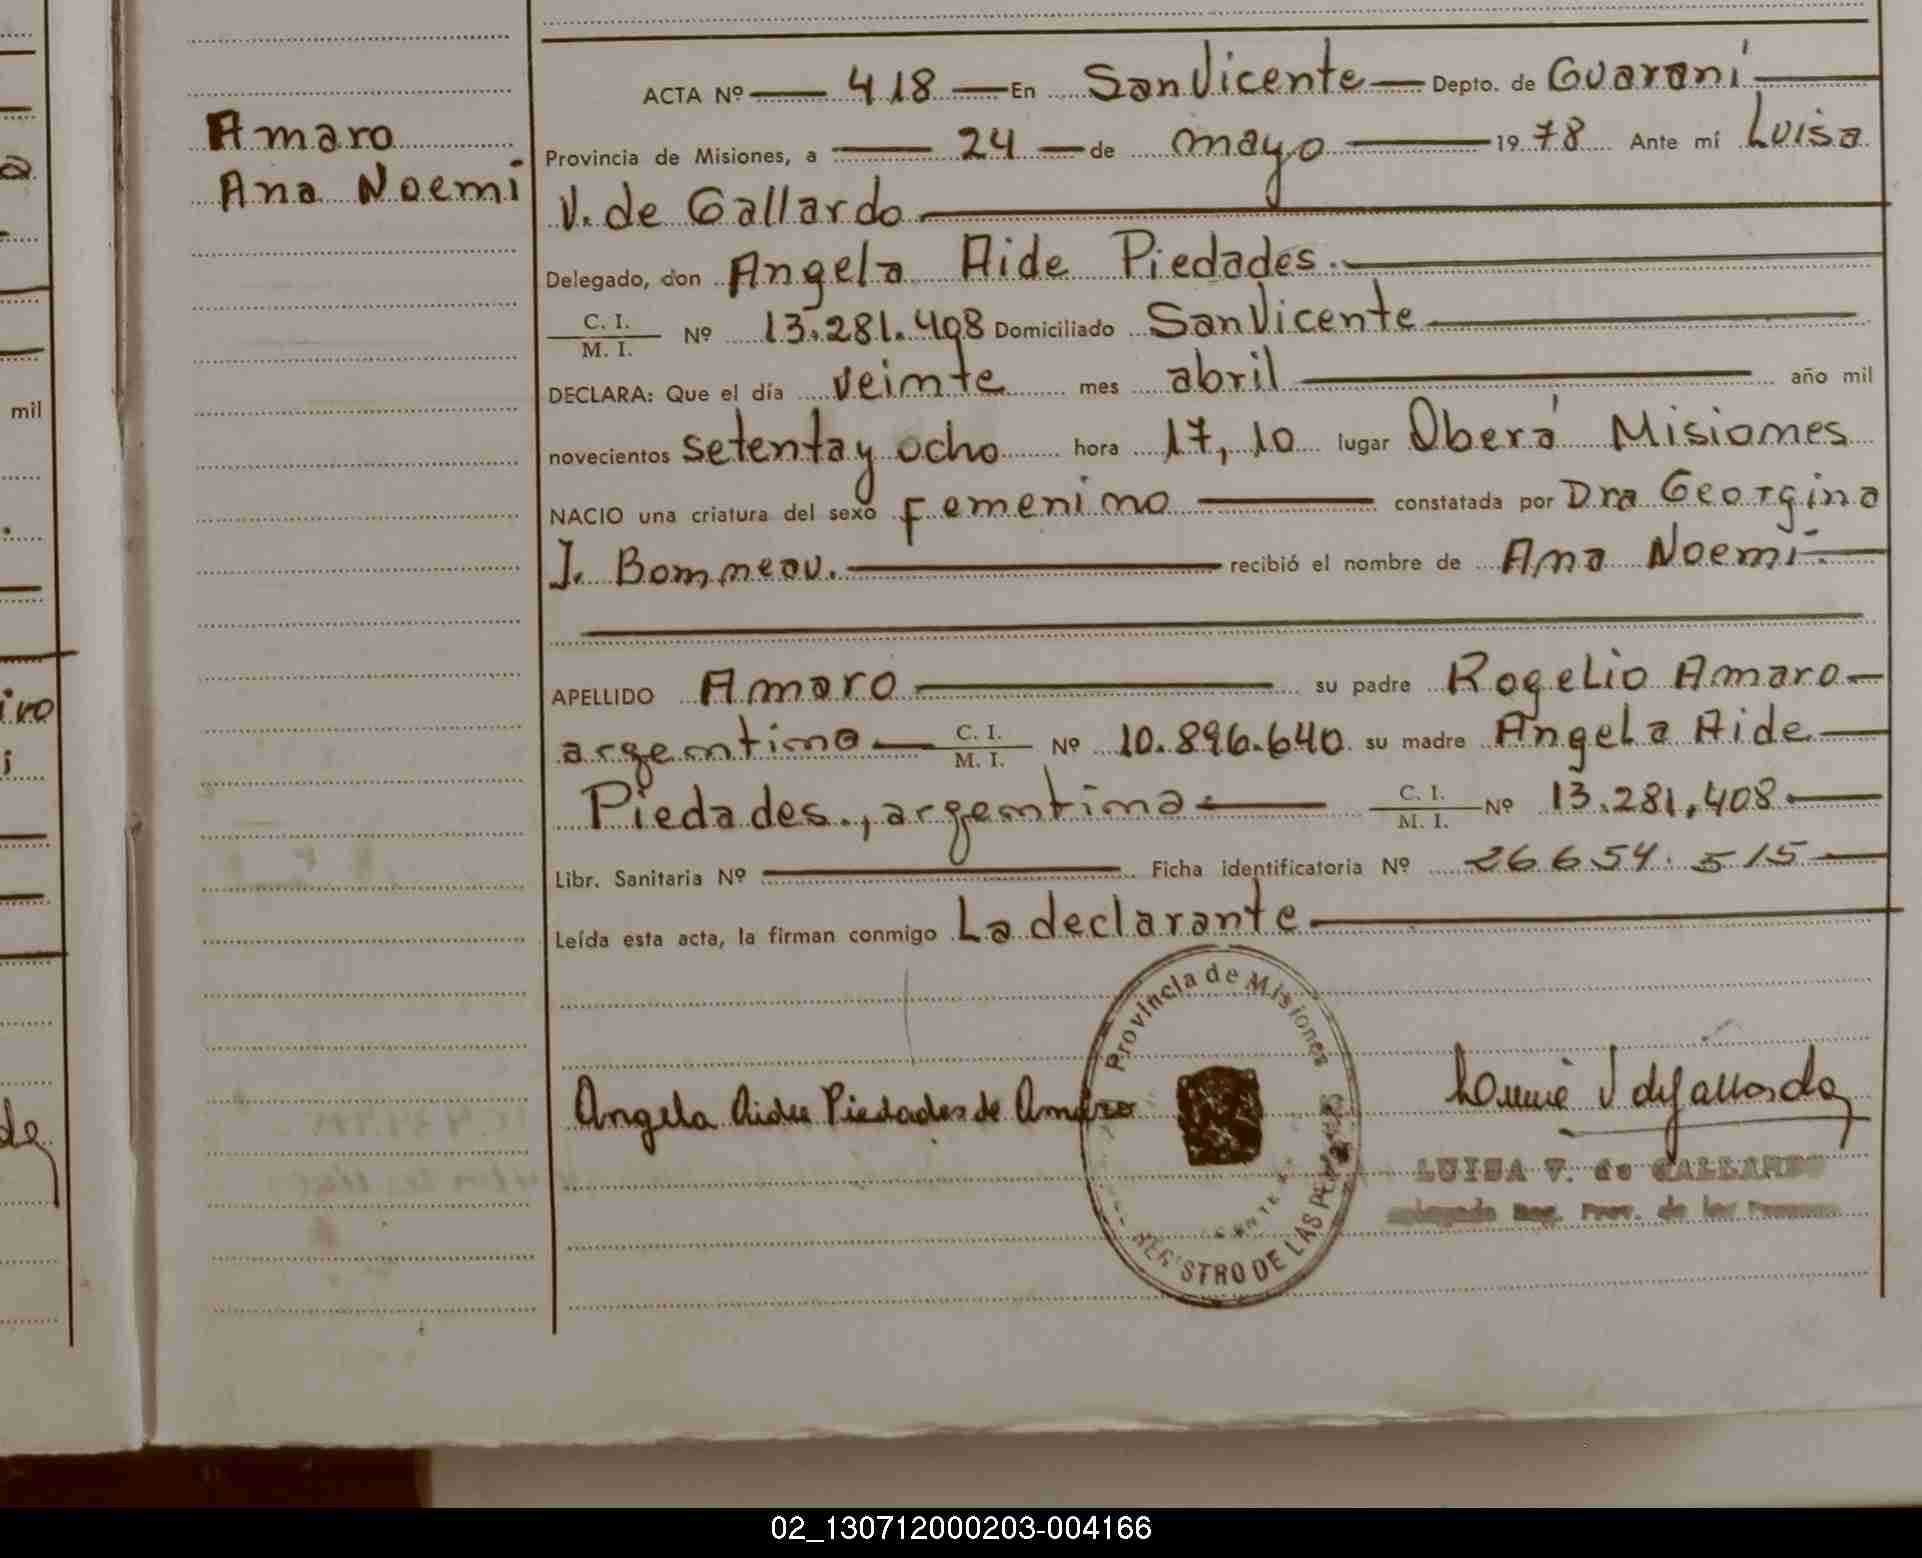 Amaro
Ana Noemi
ACTA Nº 418 En San Vicente Depto. de Guaraní
Provincia de Misiones, a 24 de mayo 1978 Ante mí Luisa
V. de Gallardo
Delegado, don Angela Aide Piedades.
C. I. / M. I. Nº 13.281.408 Domiciliado San Vicente
DECLARA: Que el día veinte mes abril año mil
novecientos setenta y ocho hora 17,10 lugar Oberá Misiones
NACIO una criatura del sexo Femenino constatada por Dra Georgina
J. Bonneau. recibió el nombre de Ana Noemí.
APELLIDO Amaro su padre Rogelio Amaro
argentino C. I. / M. I. Nº 10.896.640 su madre Angela Aide
Piedades., argentina C. I. / M. I. Nº 13.281,408
Libr. Sanitaria Nº Ficha identificatoria Nº 26654.515
Leída esta acta, la firman conmigo La declarante
Provincia de Misiones
REGISTRO DE LAS PERSONAS
Angela Aidee Piedades de Amaro
LUISA V. de GALLARDO
mil
02_130712000203-004166